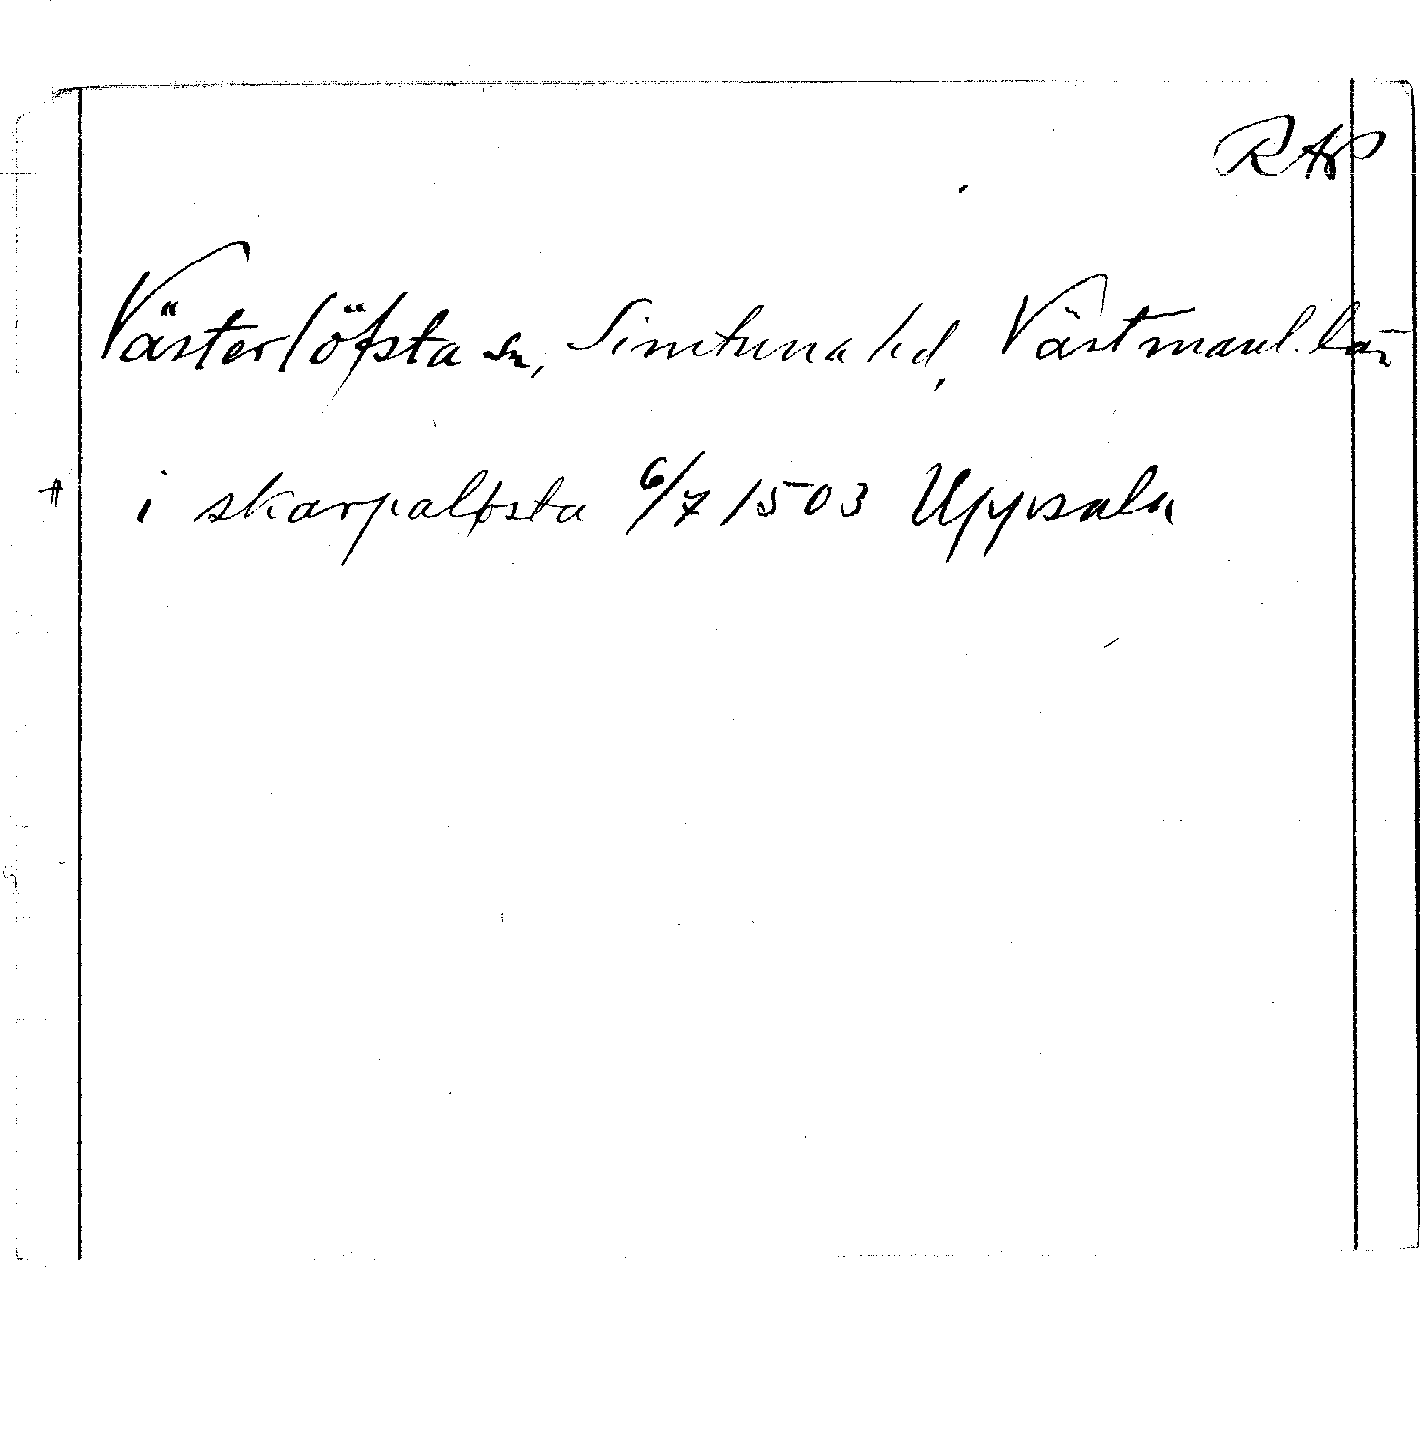 RAP
Västerlöfsta sn, Simtuna hd, Västmanl. län
# i skarpalöfsta 6/7 1503 Uppsala